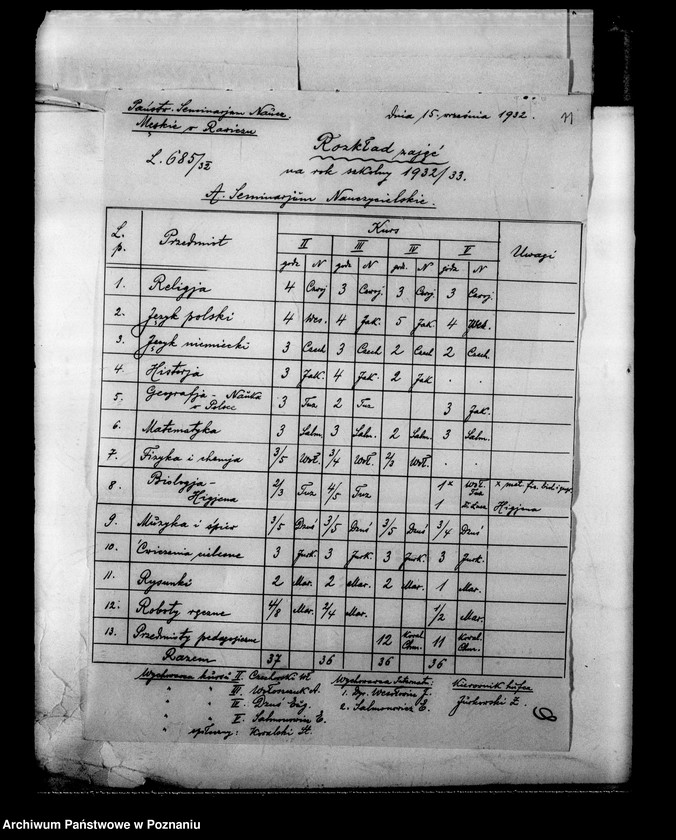 Państw. Seminarjum Naucz.
Męskie w Rawiczu
dnia 15. września 1932.
L. 685/32
Rozkład zajęć
na rok szkolny 1932/33.
A. Seminarjum Nauczycielskie.
L. p. Przedmiot Kurs Uwagi
II III IV V
godz N godz N god. N godz N
1. Religja 4 3 3 3
2. Język polski 4 Wes. 4 Jak. 5 Jak. 4
3. Język niemiecki 3 Czech 3 Czech 2 Czech 2 Czech.
4. Historja 3 Jak. 4 Jak. 2 Jak . .
5. Geografja - Nauka o Polsce 3 Tuz 2 Tuz 3 Jak.
6. Matematyka 3 Salm. 3 Salm. 2 Salm. 3 Salm.
7. Fizyka i chemja 3/5 Woł. 3/4 Woł. 2/3 Woł. . .
8. Biologja - Higjena 2/3 Tuz 4/5 Tuz 1 x Tuz x met. fiz.
1 Higjena
9. Muzyka i śpiew 3/5 Dzuś 3/5 Dzuś 3/5 Dzuś 3/4 Dzuś
10. Cwiczenia cielesne 3 Jurk. 3 Jurk. 3 Jurk. 3 Jurk.
11. Rysunki 2 Mar. 2 Mar. 2 Mar. 1 Mar.
12. Roboty ręczne 4/8 Mar. 2/4 Mar. 1/2 Mar.
13. Przedmioty pedagogiczne 12 Kowal. 11 Kowal.
Razem 37 36 36 36
Wychowawca kursu II. Czechowski
" " III. A.
" " IV. Dzuś Eug.
" " V. Salmonowicz E.
" Kowalski St.
Wychowawca Internatu:
1. J.
2. Salmonowicz E.
Kierownik hufca
Jurkowski Z.
Archiwum Państwowe w Poznaniu